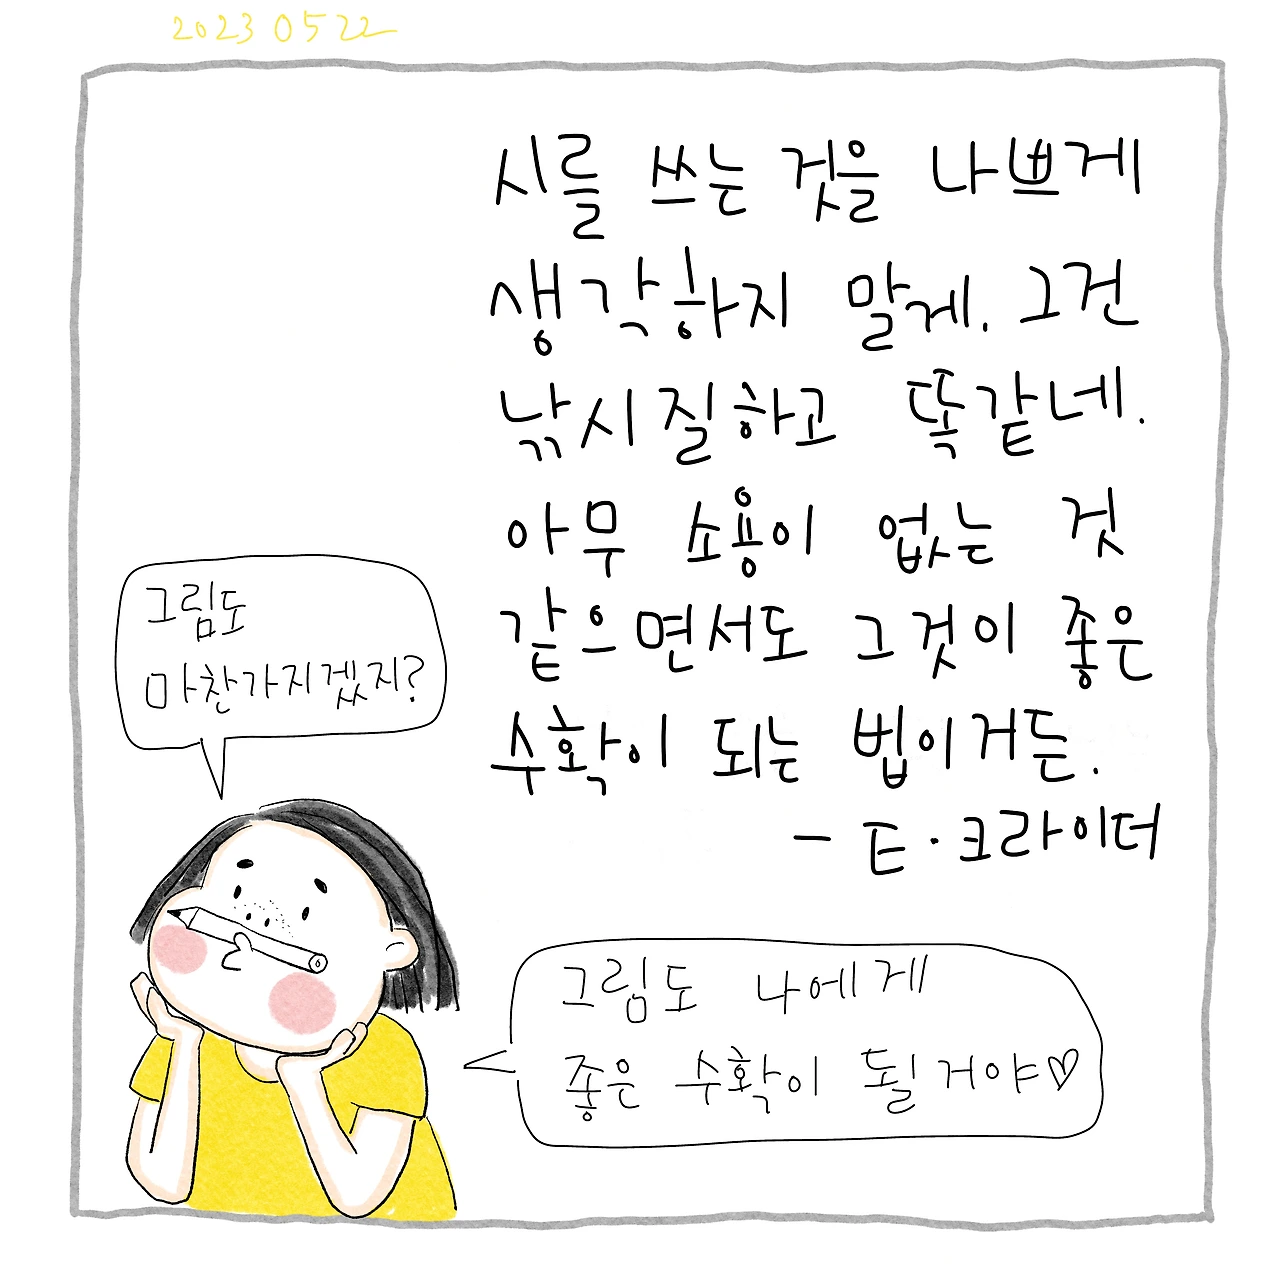 2023 05 22
시를 쓰는 것을 나쁘게
생각하지 말게. 그건
낚시질하고 똑같네.
아무 소용이 없는 것
같으면서도 그것이 좋은
수확이 되는 법이거든.
- E·크라이더
그림도
마찬가지겠지?
그림도 나에게
좋은 수확이 될거야♡